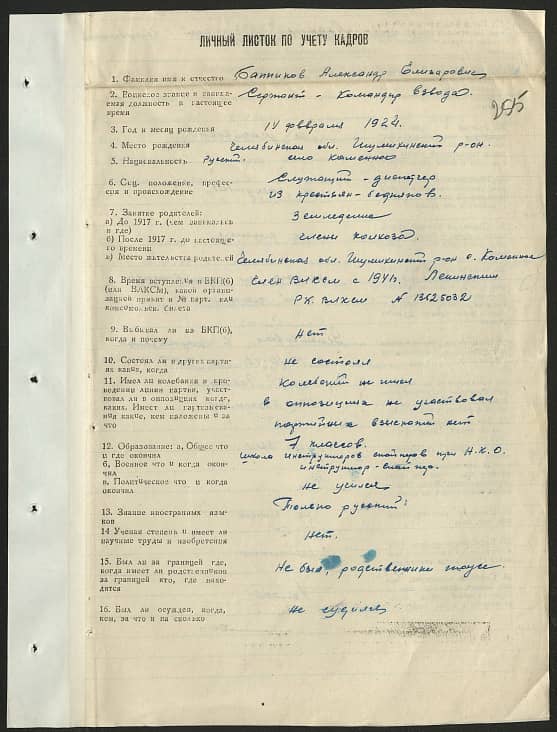 ЛИЧНЫЙ ЛИСТОК ПО УЧЕТУ КАДРОВ
1. Фамилия имя и отчество Баппиков Александр Елизарович
2. Воинское звание и занимаемая должность в настоящее время Сержант - Командир взвода.
3. Год и месяц рождения IV февраля 1924.
4. Место рождения Челябинская обл. Ищимкинский р-он.
5. Национальность Русск. село Каменное
6. Соц. положение, профессия и происхождение Служащий - диспетчер
из крестьян-бедняков.
7. Занятие родителей:
а) До 1917 г. (чем занимались и где) Земледелие
б) После 1917 до настоящего времени члены колхоза.
в) Место жительства родителей Челябинская обл. Ищимкинский р-он с. Каменное
8. Время вступления в ВКП(б) (или ВЛКСМ), какой организацией принят и № парт. или комсомольск. билета член ВЛКСМ с 1941г. Ленинским
РК ВЛКСМ № 13625032
9. Выбывал ли из ВКП(б), когда и почему Нет
10. Состоял ли в других партиях каких, когда не состоял
11. Имел ли колебания в проведении линии партии, участвовал ли в оппозициях когда, каких. Имеет ли партвзыскания какие, кем наложены и за что Колебаний не имел
в оппозициях не участвовал
партийных взысканий нет
12. Образование: а, Общее что и где окончил 7 классов.
б, Военное что и когда окончил школа инструкторов снайперов при Н.К.О.
инструктор-снайпер.
в, Политическое что и когда окончил не учился
13. Знание иностранных языков Только русский
14 Ученая степень и имеет ли научные труды и изобретения Нет.
15. Был ли за границей где, когда имеет ли родственников за границей кто, где находится Не был, родственники тоже.
16. Был ли осужден, когда, кем, за что и на сколько не судился